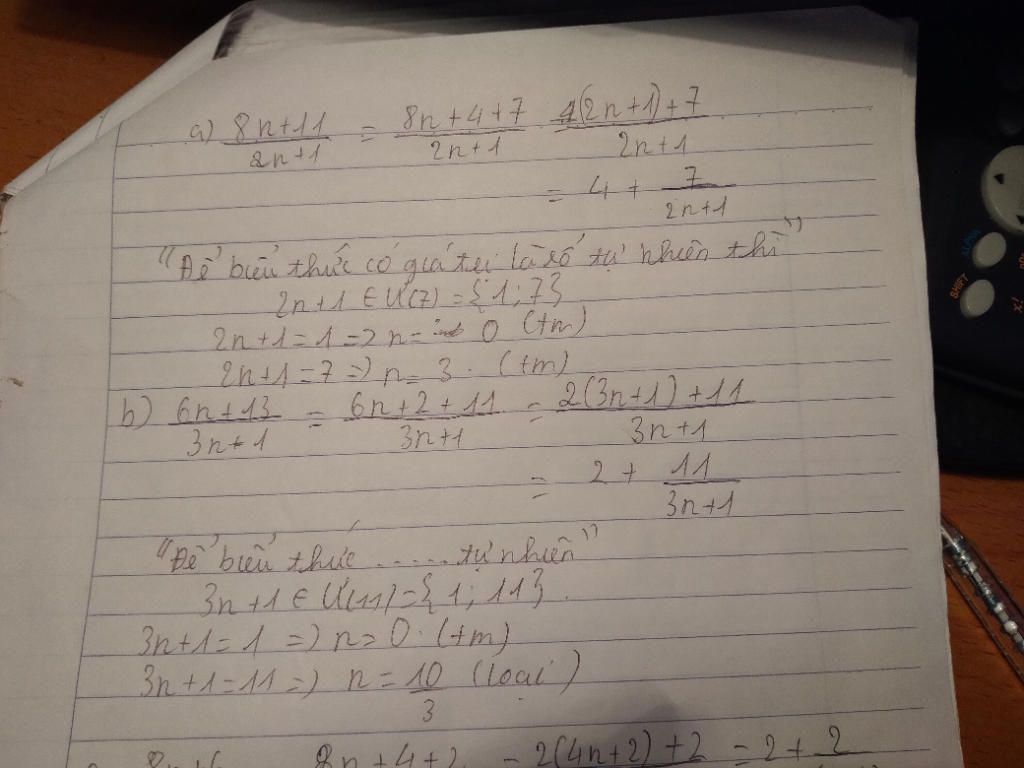 a) (8n+11)/(2n+1) = (8n+4+7)/(2n+1) (4(2n+1)+7)/(2n+1)
= 4 + 7/(2n+1)
"Để biểu thức có giá trị là số tự nhiên thì"
2n+1 ∈ Ư(7) = {1; 7}
2n+1 = 1 => n = 0 (tm)
2n+1 = 7 => n = 3. (tm)
b) (6n+13)/(3n+1) = (6n+2+11)/(3n+1) = (2(3n+1)+11)/(3n+1)
= 2 + 11/(3n+1)
"Để biểu thức ..... tự nhiên"
3n+1 ∈ Ư(11) = {1; 11}.
3n+1 = 1 => n = 0. (tm)
3n+1 = 11 => n = 10/3 (loại)
8n+4+2 = 2(4n+2)+2 = 2+2
SHIFT
ALPHA